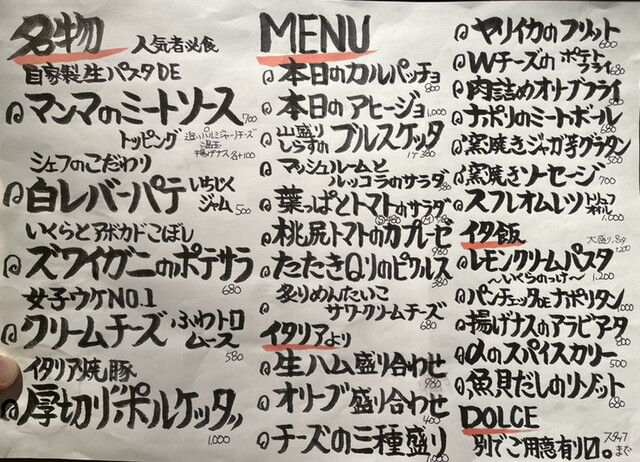 名物 人気者必食
自家製生パスタDE
マンマのミートソース 700
トッピング 追いパルミジャーノチーズ
温玉
揚げナス 各+100
シェフのこだわり
白レバーパテ いちじくジャム 500
いくらとアボカドこぼし
ズワイガニのポテサラ 680
女子ウケNO.1
クリームチーズ ふわトロムース 580
イタリア焼豚
厚切りポルケッタッ 1,000
MENU
本日のカルパッチョ 800
本日のアヒージョ 1,000
山盛りしらすのブルスケッタ 1ケ380
マッシュルームと
ルッコラのサラダ 880
葉っぱとトマトのサラダ
桃尻トマトのカプレーゼ 980
たたきQりのピクルス 380
炙りめんたいこ
サワークリームチーズ 680
イタリアより
生ハム盛り合わせ 980
オリーブ盛り合わせ 400
チーズの三種盛り
ヤリイカのフリット 600
Wチーズのポテトフライ 680
肉詰めオリーブフライ 500
ナポリのミートボール 680
窯焼きジャガ芋グラタン 500
窯焼きソーセージ 700
スフレオムレツ トリュフ 1,000
イタ飯 大盛り
レモンクリームパスタ 1,200
〜いくらのっけ〜
パンチェッタDEナポリタン 1,000
揚げナスのアラビアータ 800
αのスパイスカリー 500
魚貝だしのリゾット 680
DOLCE
別でご用意有り〼。スタッフまで